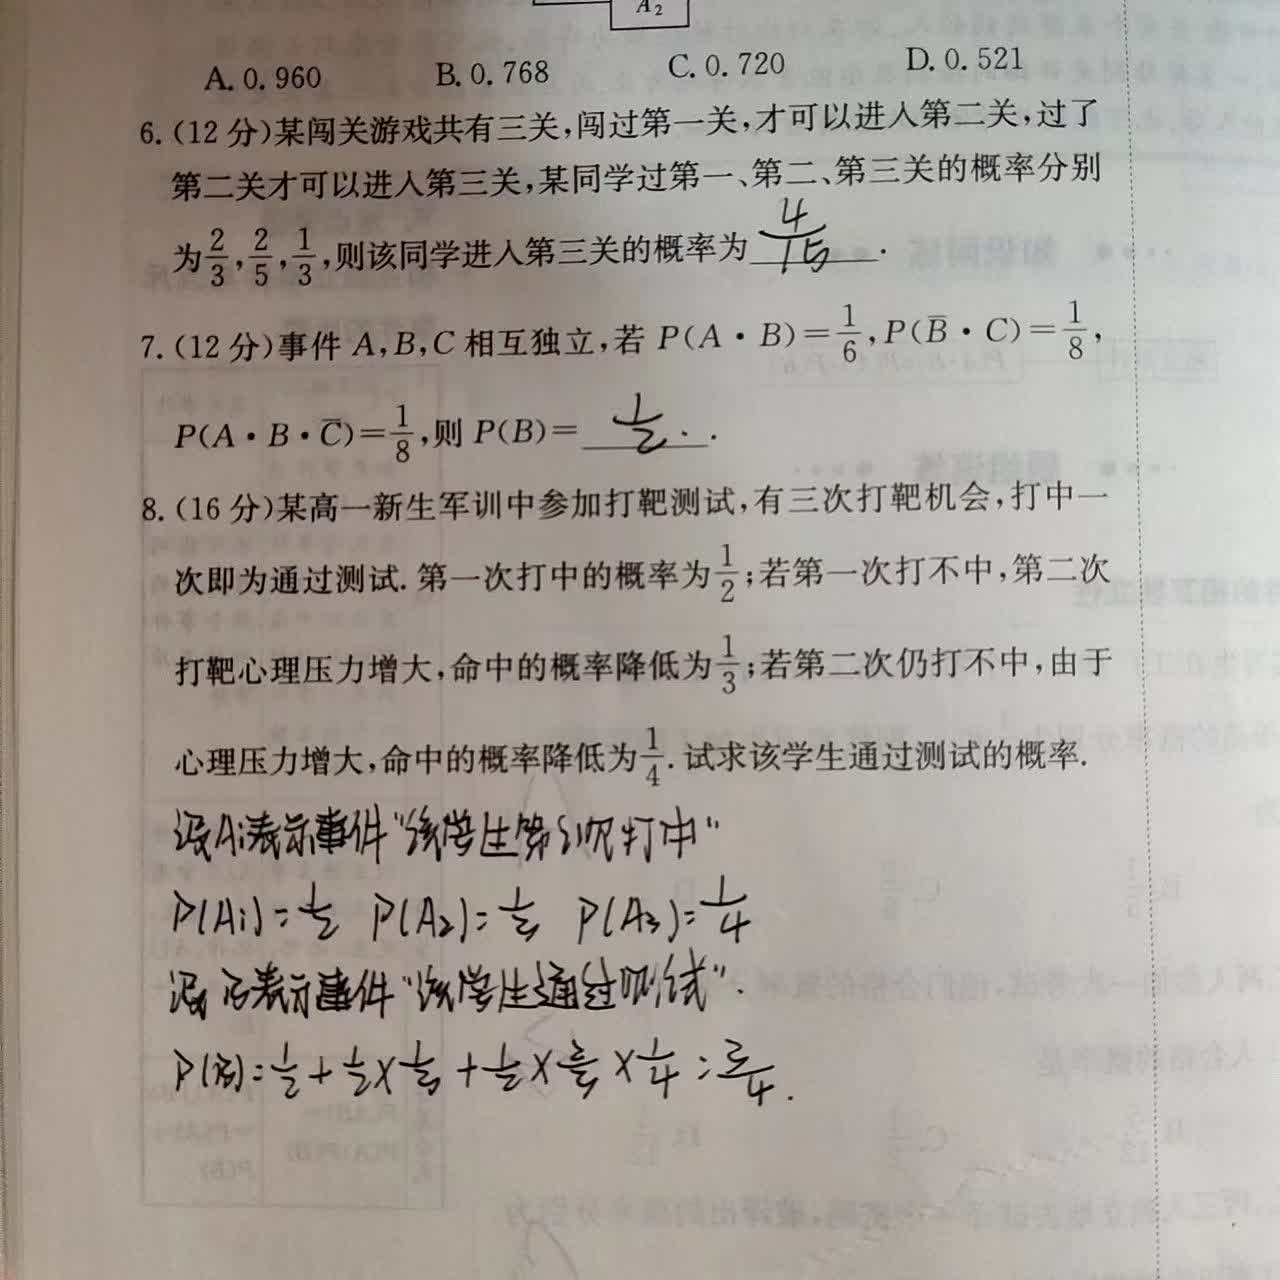 A₂
A. 0.960 B. 0.768 C. 0.720 D. 0.521
6. (12 分)某闯关游戏共有三关,闯过第一关,才可以进入第二关,过了
第二关才可以进入第三关,某同学过第一、第二、第三关的概率分别
为2/3,2/5,1/3,则该同学进入第三关的概率为 4/15 .
7. (12 分)事件 A,B,C 相互独立,若 P(A·B)=1/6,P(B̅·C)=1/8,
P(A·B·C̅)=1/8,则 P(B)= 1/2 . .
8. (16 分)某高一新生军训中参加打靶测试,有三次打靶机会,打中一
次即为通过测试. 第一次打中的概率为1/2;若第一次打不中,第二次
打靶心理压力增大,命中的概率降低为1/3;若第二次仍打不中,由于
心理压力增大,命中的概率降低为1/4. 试求该学生通过测试的概率.
设Ai表示事件“该学生第i次打中”
P(A1)=1/2 P(A2)=1/3 P(A3)=1/4
设B表示事件“该学生通过测试”.
P(B)=1/2+1/2×1/3+1/2×2/3×1/4=3/4.